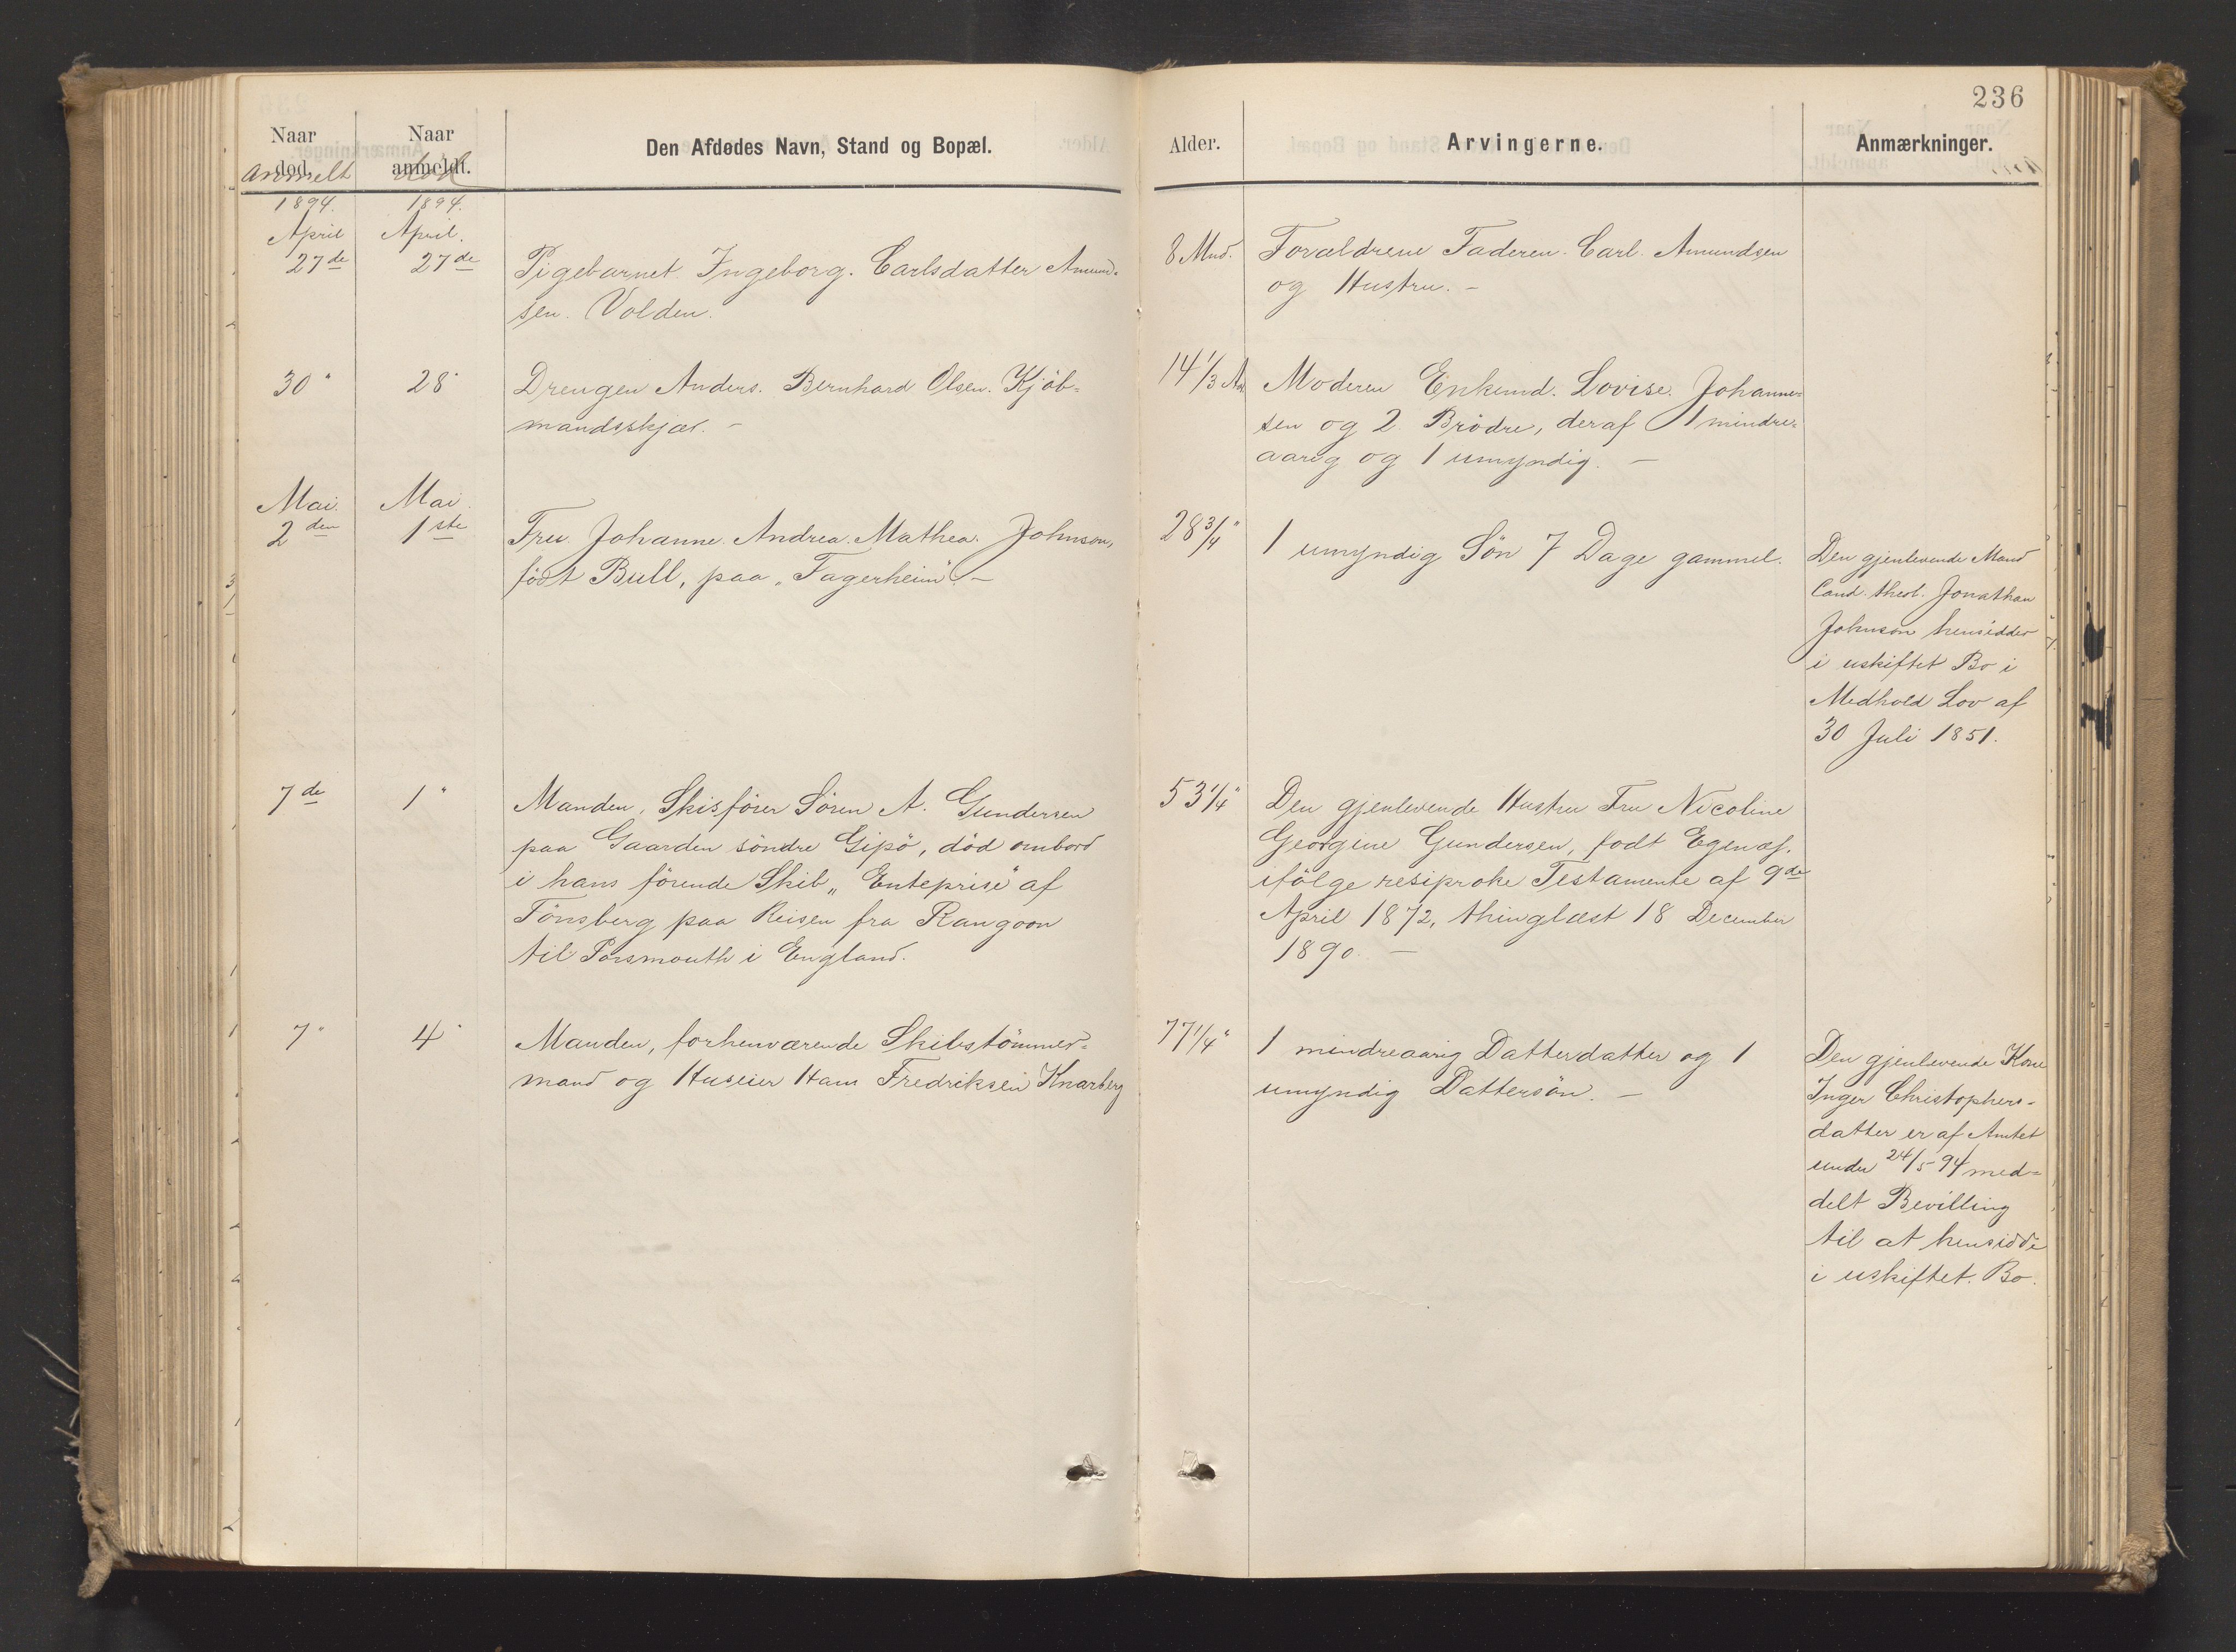 236
Naar død. anmelt
Naar anmeldt. død
Den Afdødes Navn, Stand og Bopæl.
Alder.
Arvingerne.
Anmærkninger.
1894. 1894.
April April.
27de 27de
Pigebarnet. Ingeborg. Carlsdatter Amund-
sen. Volden.
8 Mnd.
Forældrene Faderen. Carl. Amundsen
og Hustru. -
30" 28"
Drengen Anders. Bernhard Olsen. Kjöb-
mandsskjær. -
14 1/3 Aar
Moderen Enkemd. Lovise. Johanne-
sen og 2 Brödre, deraf 1 mindre-
aarig og 1 umyndig. -
Mai. Mai.
2den 1ste
Fru. Johanne. Andrea. Mathea. Johnson,
född Bull, paa "Fagerheim". -
28 3/4"
1 umyndig Sön 7 Dage gammel.
Den gjenlevende Mand
Cand. theol. Jonathan
Johnson hensidder
i uskiftet Bo i
Medhold Lov af
30 Juli 1851.
7de 1"
Manden, Skisförer Sören A. Gundersen
paa Gaarden söndre Gipö, död ombord
i hans förende Skib "Enteprise" af
Tönsberg paa Reisen fra Rangoon
til Porsmouth i England.
53 1/4"
Den gjenlevende Hustru Fru Nicoline
Georgine Gundersen, født Egenæs.
ifölge resiproke Testamente af 9de
April 1872, thinglæst 18 December
1890. -
7" 4"
Manden, forhenværende Skibstömmer-
mand og Huseier Hans Fredriksen Knarberg
77 1/4"
1 mindreaarig Datterdatter og 1
umyndig Dattersön. -
Den gjenlevende Kone
Inger Christophers-
datter er af Amtet
under 24/5 94 med-
delt Bevilling
til at hensidde
i uskiftet. Bo.